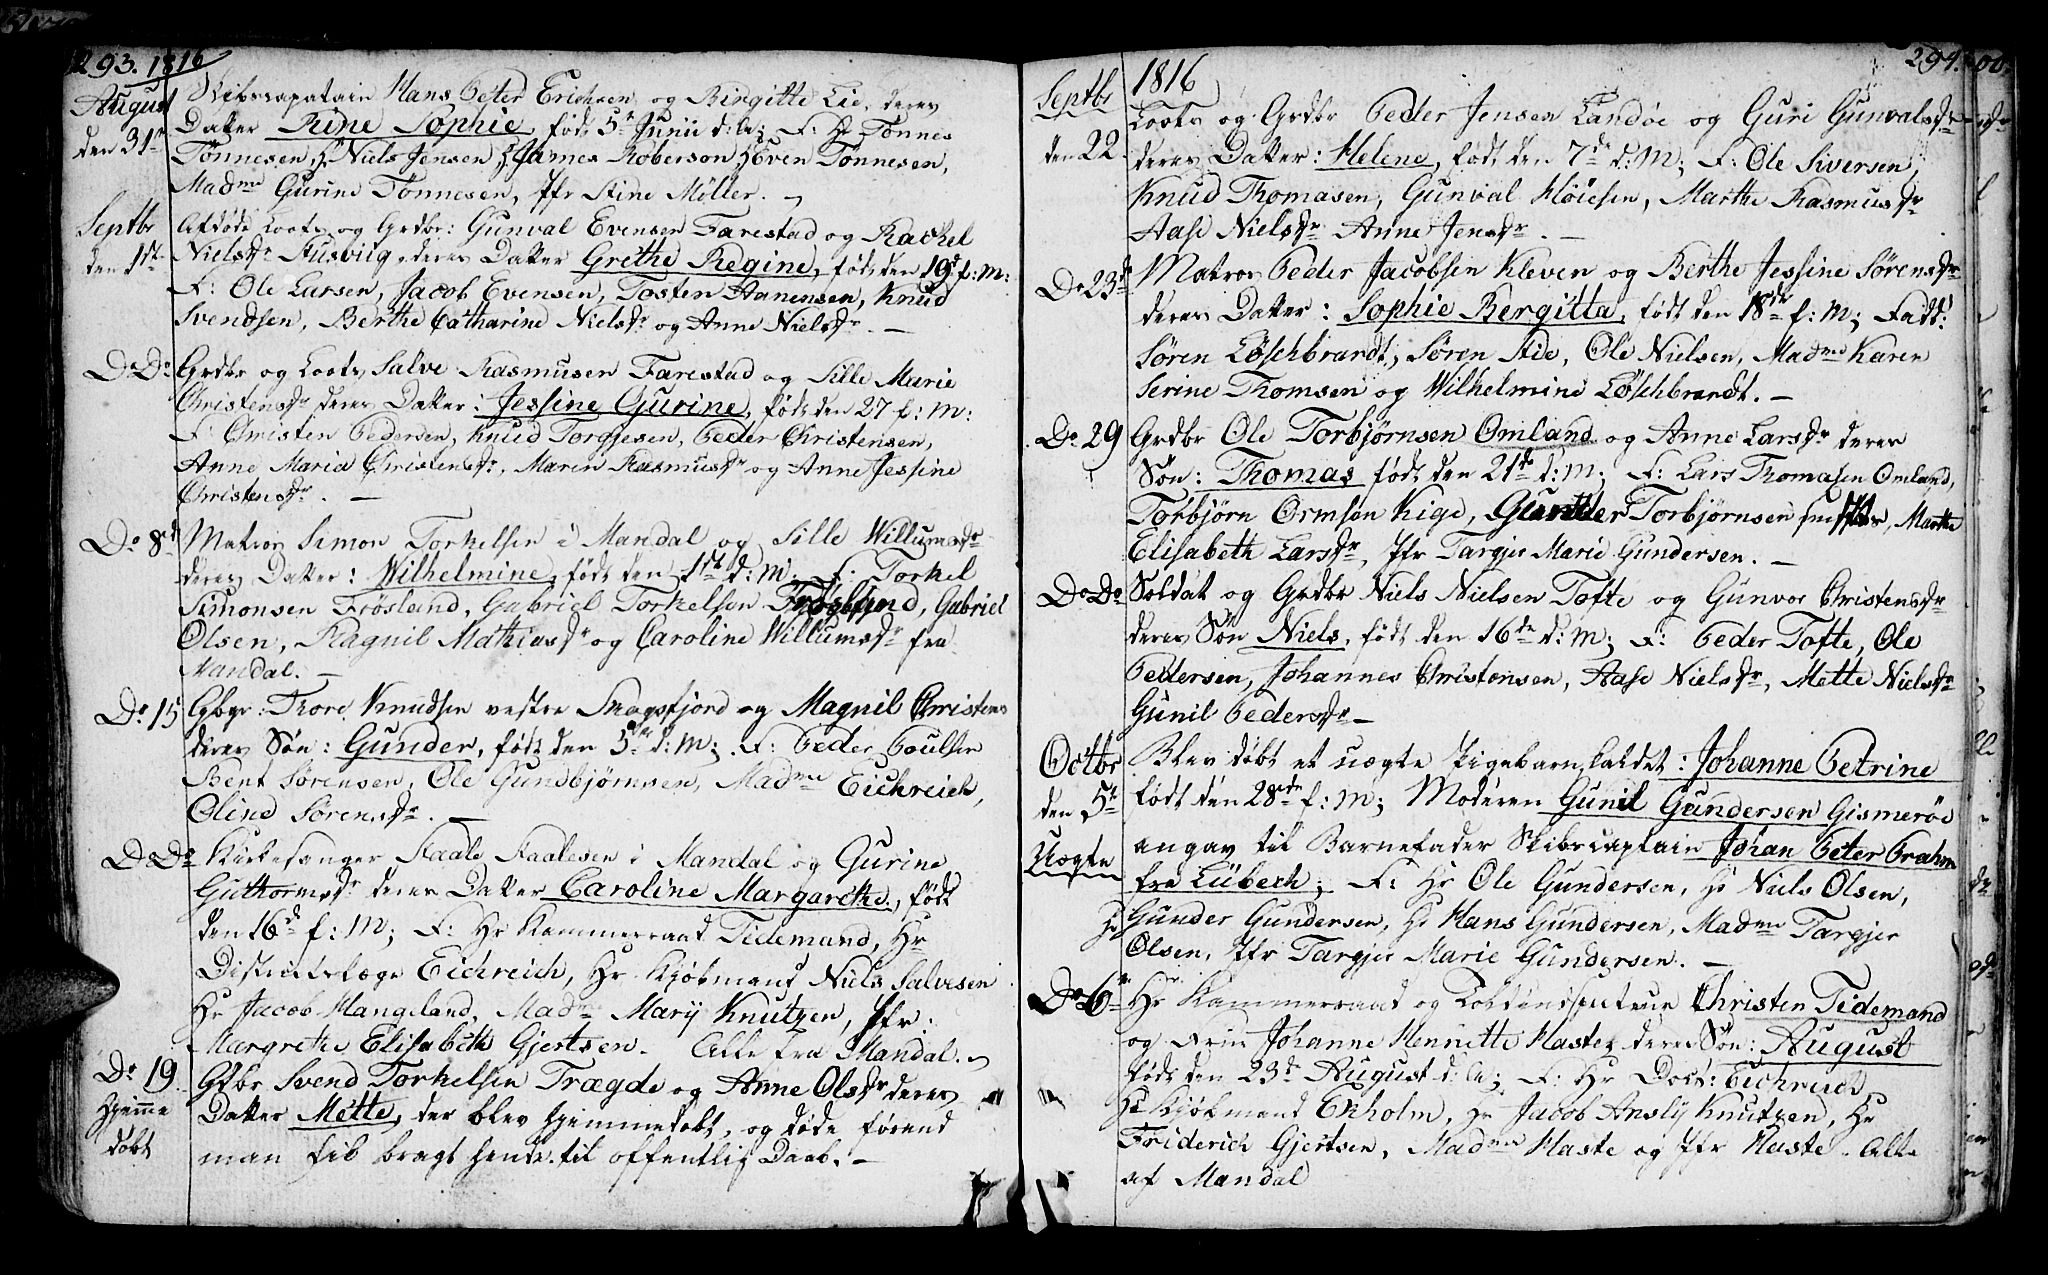 293. 1816
August
den 31te
Skibscapatain Hans Peter Erichsen og Birgitte Lie, deres
Datter Rine Sophie, født 5te Junii d:A; F: Hr Tønnes
Tønnesen, Hr Niels Jensen Hr James Roberson Hr Even Tønnesen,
Madme Gurine Tønnesen, Jfr Stine Møller. —
Septbr
den 1ste
Afdøde Loots og Grdbr: Gunval Evensen Farestad og Rachel
Nielsdr Ausviig, deres Datter Grethe Regine, født den 19d f:M:
F: Ole Larsen, Jacob Evensen, Tosten Annensen, Knud
Svendsen, Berthe Catharine Nielsdr og Anne Nielsdr. —
Do Do
Grdbr og Loots Salve Rasmusen Farestad og Sille Marie
Christensdr deres Datter: Jessine Gurine, født den 27 f:M:
F: Christen Pedersen, Knud Torgjesen, Peder Christensen,
Anne Maria Christensdr, Maren Rasmusdr og Anne Jessine
Christensdr. —
Do 8d
Matros Simon Torkelsen i Mandal og Sille Willumsdr
deres Datter: Wilhelmine, født den 1ste d:M. F: Torkel
Simonsen Frøsland, Gabriel Torkelsen Frøsland, Gabriel
Olsen, Ragnil Mathiasdr og Caroline Willumsdr fra
Mandal. —
Do 15
Gbgr: Thore Knudsen vestre Snogsfjord og Magnil Christens
deres Søn: Gunder, født den 5te d:M; F: Peder Poulsen
Bent Sørensen, Ole Gundbjørnsen, Madme Eichreich,
Oline Sørensdr. —
Do Do
Kirkesanger Staale Staalesen i Mandal og Gurine
Guthormsdr deres Datter Caroline Margarethe, født
den 16d f:M; F: Hr Kammerraad Tidemand, Hr
Districtslæge Eichreich, Hr Kjøbmand Niels Salvesen
Hr Jacob Mangeland, Madme Marij Knutzen, Jfr:
Margrethe Elisabeth Gjertsen. Alle fra Mandal. —
Do 19.
Hjemme
døbt
Gdbr Svend Torkelsen Trægde og Anne Olsdr deres
Datter Mette, der blev hjemmedøbt, og døde førend
man fik bragt hende til offentlig Daab. —
294.
1816
Septbr
den 22
Loots og Grdbr Peder Jensen Landøe og Guri Gunvalsdr
deres Datter: Helene, født den 7de d:M; F: Ole Siversen,
Knud Thomasen, Gunval Kløiesen, Marthe Rasmusdr
Aase Nielsdr Anne Jensdr. —
Do 23d
Matros Peder Jacobsen Kleven og Berthe Jessine Sørensdr
deres Datter: Sophie Bergitta, født den 18de f:M; Fadd:
Søren Löschbrandt, Søren Stie, Ole Nielsen, Madme Karen
Serine Thomsen og Wilhelmine Löschbrandt. —
Do 29
Grdbr Ole Torbjørnsen Omland og Anne Larsdr deres
Søn: Thomas født den 21de d:M; F: Lars Thomasen Omland,
Torbjørn Ormsen Kige, Gunder Torbjørnsen, Marthe
Elisabeth Larsdr, Jfr Targjer Marie Gundersen. —
Do Do
Soldat og Grdbr Niels Nielsen Tofte og Gunvor Christensdr
deres Søn Niels, født den 16de d:M; F: Peder Tofte, Ole
Pedersen, Johannes Christensen, Aase Nielsdr, Mette Nielsdr
Gunil Pedersdr —
Octbr
den 5te
Uægte
Blev døbt et uægte Pigebarn kaldet: Johanne Petrine
født den 28de f:M; Moderen Gunil Gundersen Gismerøe
angav til Barnefader Skibscaptain Johan Peter Prahm
fra Lübech; F: Hr Ole Gundersen, Hr Niels Olsen,
Hr Gunder Gundersen, Hr Hans Gundersen, Madme Targjer
Olsen, Jfr Targjer Marie Gundersen. —
Do 6te
Hr Kammerraad og Toldinspecteur Christen Tidemand
og Frue Johanne Henrette Haste deres Søn: August
født den 23de August d:A; F: Hr Doct: Eichreich
Hr Kjøbmand Enholm, Hr Jacob Ansly Knutzen, Hr
Friderich Gjertsen, Madme Haste og Jfr Haste. Alle
af Mandal